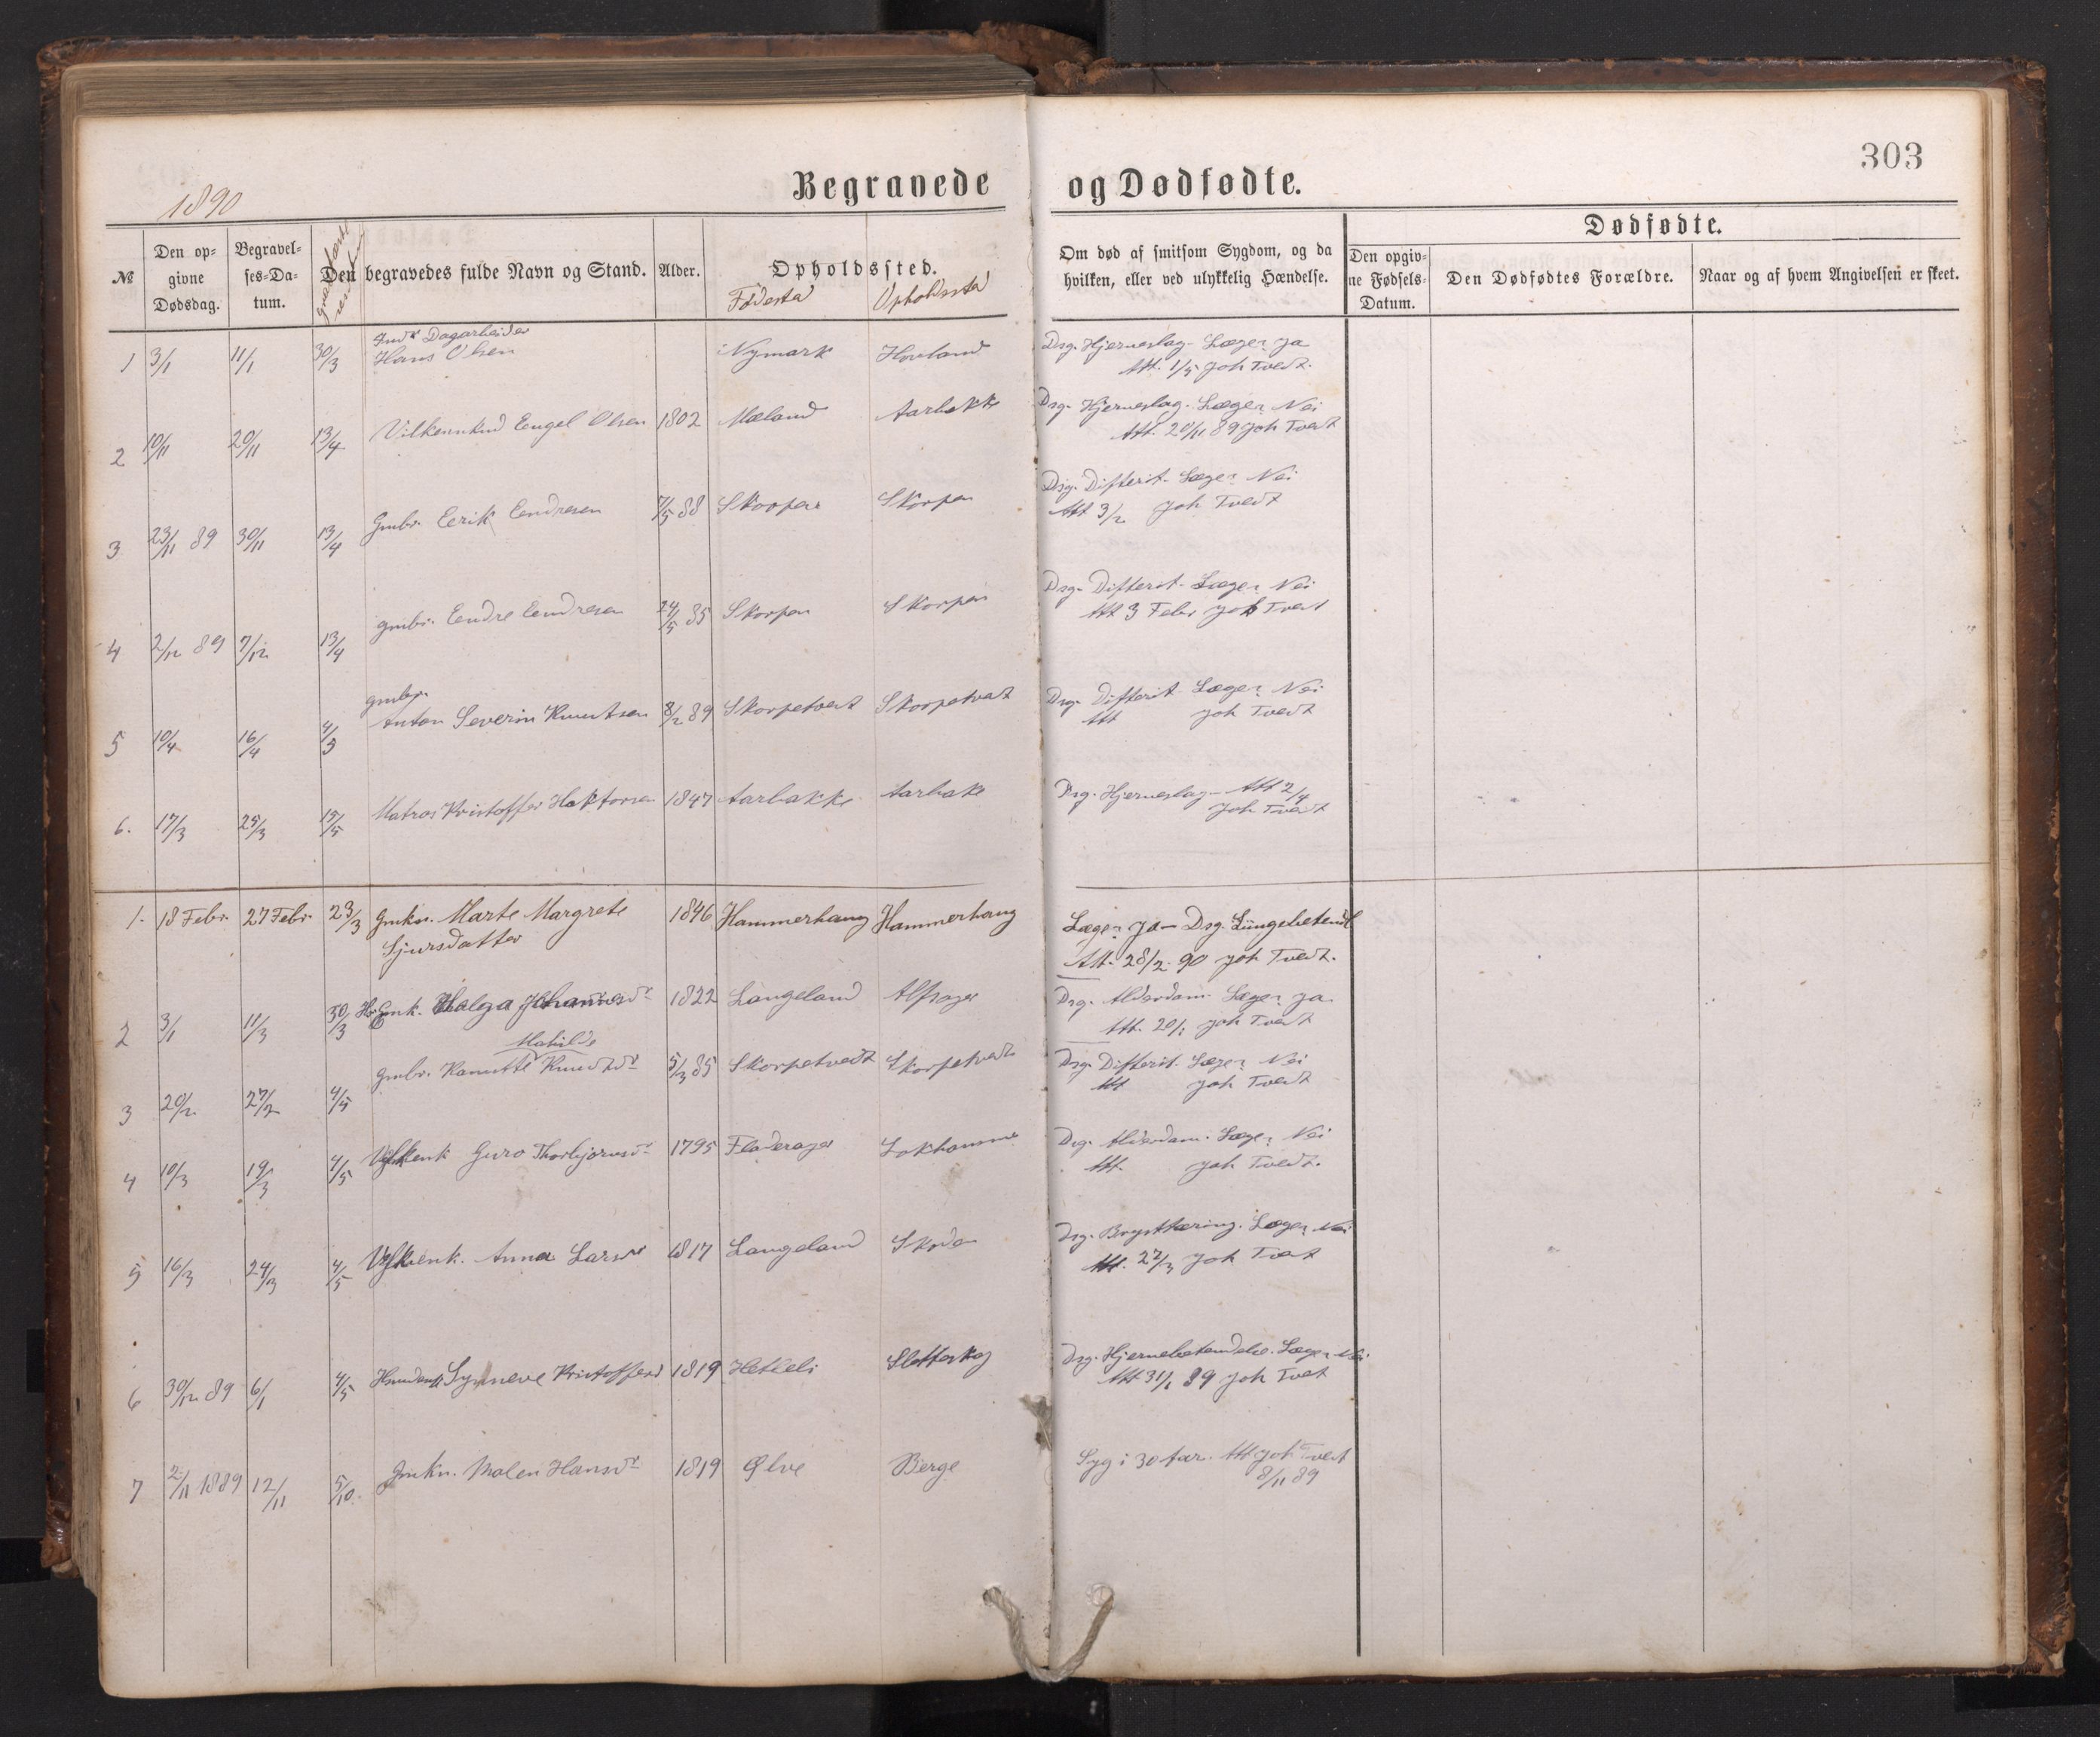 303
Begravede og Dødfødte.
1890
№
Den opgivne Dødsdag.
Begravelses-Datum.
Den begravedes fulde Navn og Stand.
Alder.
Opholdssted.
Fødested Opholdssted
Om død af smitsom Sygdom, og da hvilken, eller ved ulykkelig Hændelse.
Dødfødte.
Den opgivne Fødsels-Datum.
Den Dødfødtes Forældre.
Naar og af hvem Angivelsen er skeet.
Dagarbeider
1 3/1 11/1 30/3 Hans Olsen Nymark Hovland Dsg. Hjerneslag- Læge? ja
Att. 1/5 Joh Tvedt.
2 10/11 20/11 13/4 Engel Olsen 1802 Mæland Aarbakke Dsg. Hjerneslag. Læge? Nei
Att. 20/11 89 Joh Tvedt
3 23/11 89 30/11 13/4 Gmbr. Eerik Eendresen 7/5 88 Skorpen Skorpen Dsg. Difterit- Læge? Nei
Att 3/2 Joh Tvedt
4 2/12 89 7/12 13/4 gmbr. Eendre Eendresen 24/5 85 Skorpen Skorpen Dsg. Difterit- Læge? Nei
Att 3 Febr Joh Tvedt
gmbr.
5 10/4 16/4 4/5 Anton Severin Knutsen 8/2 89 Skorpetvedt Skorpetvedt Dsg. Difterit Læge? Nei
Att Joh Tvedt
6. 17/3 25/3 15/5 Matros Kristoffer Haktorsen 1847 Aarbakke Aarbake Dsg. Hjerneslag- Att 2/4
Joh Tvedt
1. 18 Febr. 27 Febr. 23/3 Gmkn. Marte Margrete 1846 Hammerhaug Hammerhaug Læge? ja- Dsg. Lungebetendl
Sjursdatter Att. 28/2 90 Joh Tvedt.
2 3/1 11/3 30/3 Helga Johannesdr 1822 Langeland Alsager Dsg. Alderdom. Læge? ja.
Att. 20/1 Joh Tvedt
Mathilde
3 20/2 27/2 4/5 gmbr. Kanutte Knudtdr 5/3 85 Skorpetvedt Skorpetvedt Dsg. Difterit. Læge? Nei
Att Joh Tvedt
4 10/3 19/3 4/5 Guro Thorbjørnsdr 1795 Fladerager Lokhammer Dsg. Alderdom. Læge? Nei
Att. Joh Tvedt.
5 16/3 24/3 4/5 Anna Larsdr 1817 Langeland Skoden Dsg. Brysttæring. Læge? Nei
Att. 27/3 Joh Tvedt
6 30/12 89 6/1 4/5 Synneve Kristoffersd 1819 Hetleli Sletteskog Dsg. Hjernebetendelse. Læge? Nei
Att 31/1 89 Joh Tvet
7 2/11 1889 12/11 5/10. Gmkn. Malen Hansdr 1819 Ølve Berge Syg i 30 Aar. Att Joh Tvedt
8/11 89